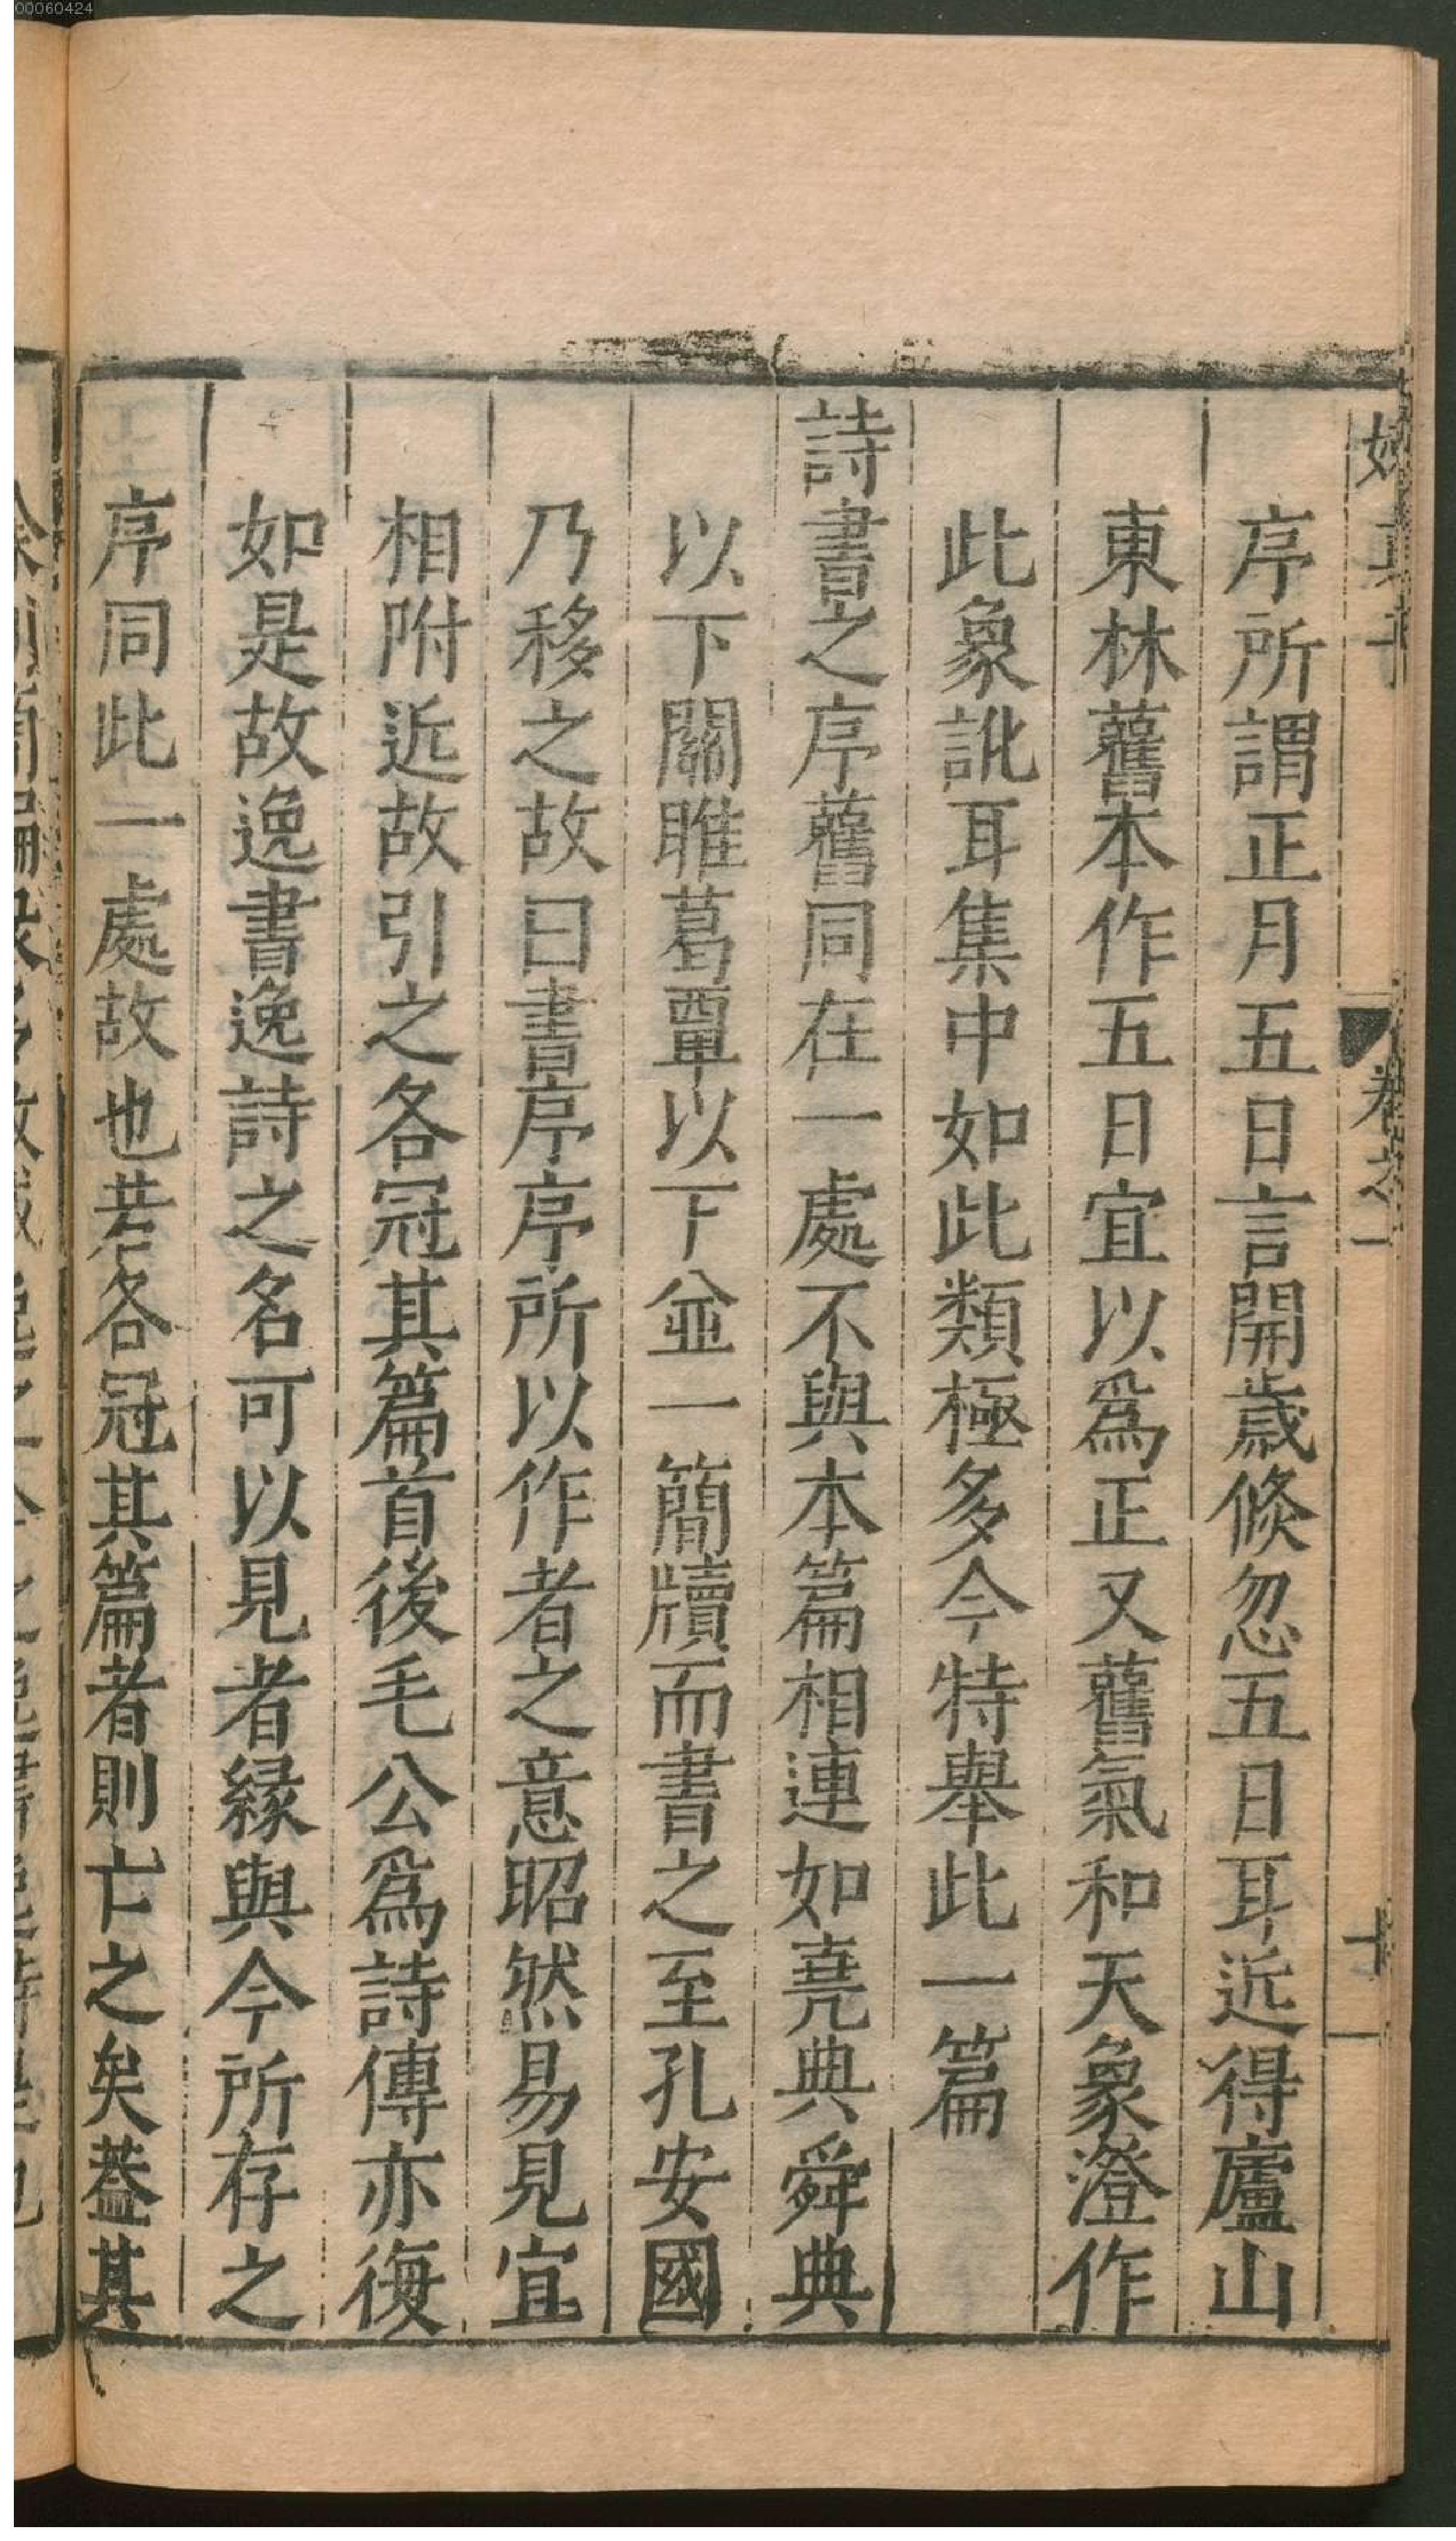 00060424
卷之一
十一
序所謂正月五日言開歲倐忽五日耳近得廬山
東林舊本作五日宜以爲正又舊氣和天象澄作
此象訛耳集中如此類極多今特舉此一篇
詩書之序舊同在一處不與本篇相連如堯典舜典
以下關睢葛覃以下並一簡牘而書之至孔安國
乃移之故曰書序序所以作者之意昭然易見宜
相附近故引之各冠其篇首後毛公爲詩傳亦復
如是故逸書逸詩之名可以見者緣與今所存之
序同此一處故也若各冠其篇者則亡之矣葢其